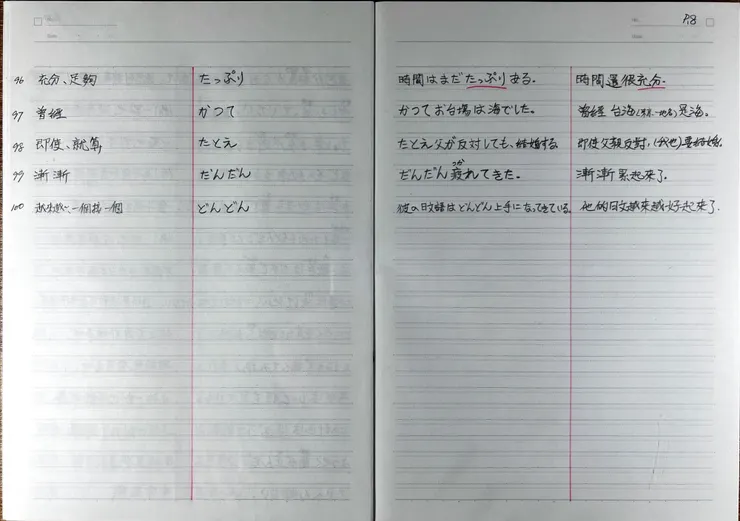 P.8
96 充分、足夠 たっぷり 時間はまだたっぷりある. 時間還很充分.
97 曾經 かつて かつてお台場は海でした。 曾經台海(東京一地名)是海。
98 即使、就算 たとえ たとえ父が反対しても、結婚する 即使父親反對，(我也)要結婚.
つか
99 漸漸 だんだん だんだん疲れてきた。 漸漸累起來了.
100 越來越、一個接一個 どんどん 彼の日文語はどんどん上手になってきている. 他的日文越來越好起來了.